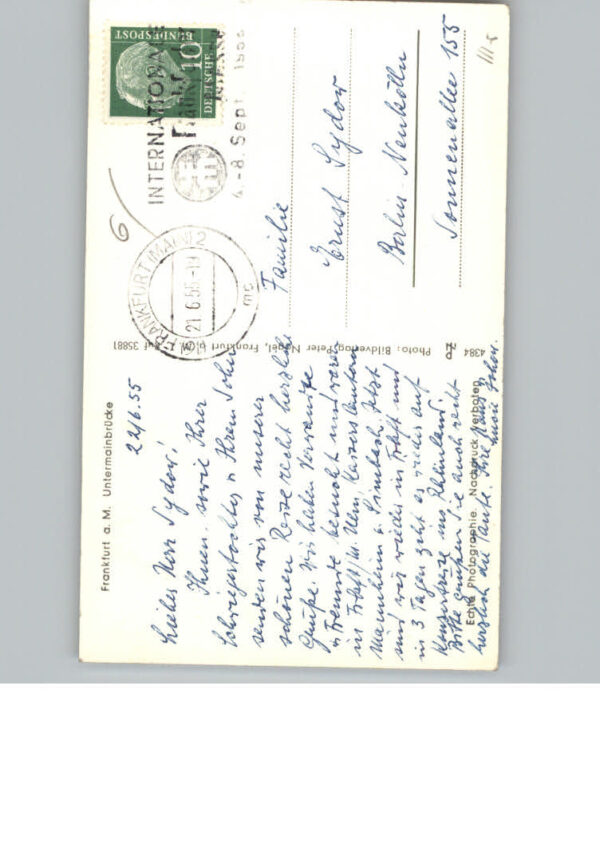 Frankfurt a. M. Untermainbrücke
22/6.55
Lieber Herr Sydow!
Ihnen, sowie Ihrer
Schwiegertochter u. Ihrem Sohn
senden wir von unserer
schönen Reise recht herzliche
Grüße. Wir haben Verwandte
u. Freunde besucht und waren
in Frkft/M. Ulm, Kaiserslautern
Mannheim u. Jetzt
sind wir wieder in Frkft und
in 3 Tagen geht es wieder auf
ins Rheinland.
Bitte grüßen Sie auch recht
herzlich die Tante. Ihre
Echte Photographie. Nachdruck verboten
4384
Photo: Bildverlag Peter Nagel, Frankfurt a. M. 1, Ruf 35881
DEUTSCHE
BUNDESPOST
10
INTERNATIONALE
4.-8. Sept. 1955
FRANKFURT (MAIN) 2
21.6.55-18
mc
6
Familie
Ernst Sydow
Berlin-Neukölln
Sonnenallee 155